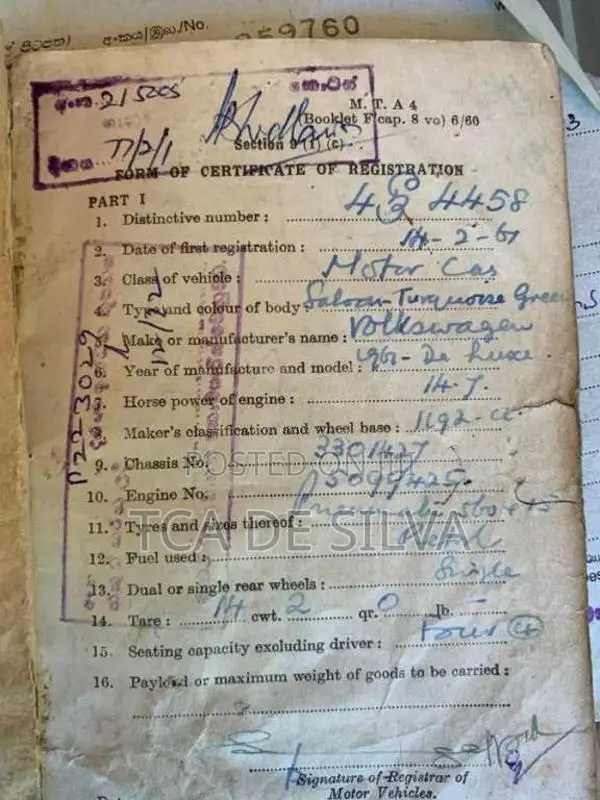 අංකය/මුල/No.
059760
අංක 215005
M. T. A 4
(Booklet F cap. 8 vo) 6/60
Section 9 (1) (c)
FORM OF CERTIFICATE OF REGISTRATION
PART I
1. Distinctive number : 4 ශ්‍රී 4458
2. Date of first registration : 14-2-61
3. Class of vehicle : Motor Car
4. Type and colour of body : Saloon-Turquoise Green
5. Make or manufacturer's name : Volkswagen
6. Year of manufacture and model : 1961- De Luxe
7. Horse power of engine : 14.7
8. Maker's classification and wheel base : 1192-cc
9. Chassis No. 3301427
10. Engine No. 5099425
11. Tyres and sizes thereof : Pneumatic 560x15
12. Fuel used : Petrol
13. Dual or single rear wheels : Single
14. Tare : 14 cwt. 2 qr. 0 lb.
15. Seating capacity excluding driver : Four (4)
16. Payload or maximum weight of goods to be carried :
Signature of Registrar of
Motor Vehicles.
POSTED ON
TCA DE SILVA